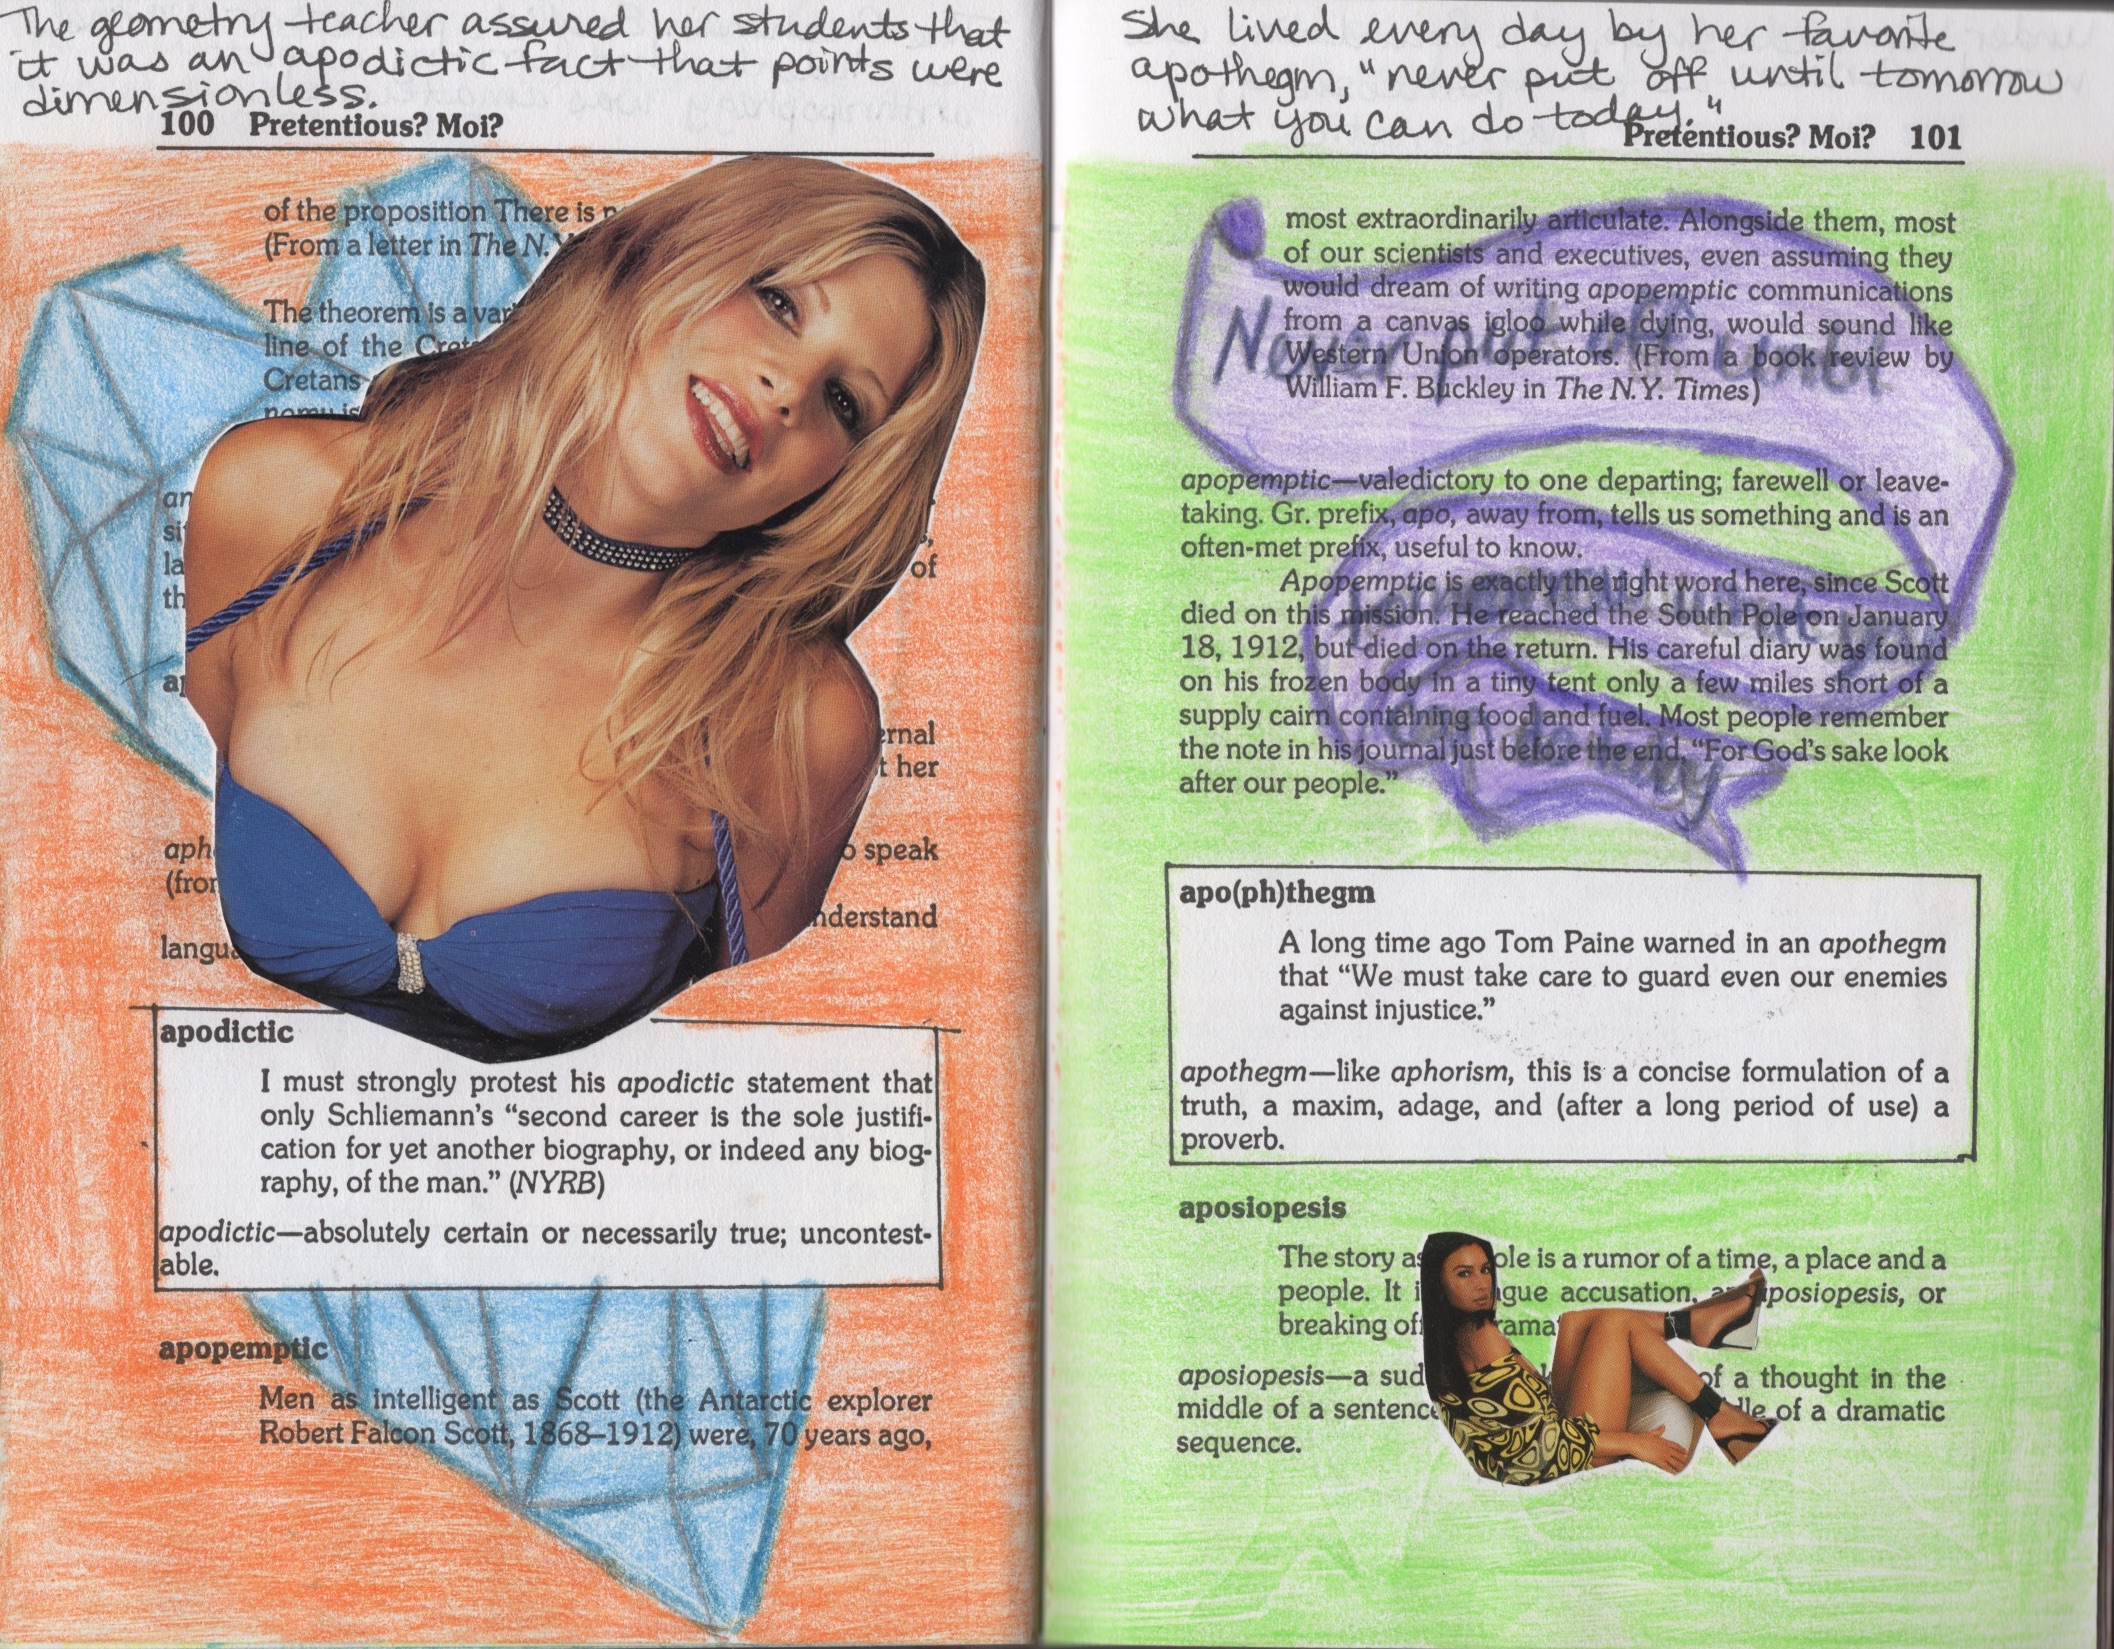 The geometry teacher assured her students that
it was an apodictic fact that points were
dimensionless.
100 Pretentious? Moi?
of the proposition There is
(From a letter in The N.Y.
The theorem is a
line of the
Cretans
of
ernal
t her
aph
o speak
(from
nderstand
apodictic
I must strongly protest his apodictic statement that
only Schliemann's “second career is the sole justifi-
cation for yet another biography, or indeed any biog-
raphy, of the man.” (NYRB)
apodictic—absolutely certain or necessarily true; uncontest-
able.
apopemptic
Men as intelligent as Scott (the Antarctic explorer
Robert Falcon Scott, 1868–1912) were, 70 years ago,
She lived every day by her favorite
apothegm, "never put off until tomorrow
what you can do today."
Pretentious? Moi? 101
most extraordinarily articulate. Alongside them, most
of our scientists and executives, even assuming they
would dream of writing apopemptic communications
from a canvas igloo while dying, would sound like
Western Union operators. (From a book review by
William F. Buckley in The N.Y. Times)
Never put off until
apopemptic—valedictory to one departing; farewell or leave-
taking. Gr. prefix, apo, away from, tells us something and is an
often-met prefix, useful to know.
Apopemptic is exactly the right word here, since Scott
died on this mission. He reached the South Pole on January
18, 1912, but died on the return. His careful diary was found
on his frozen body in a tiny tent only a few miles short of a
supply cairn containing food and fuel. Most people remember
the note in his journal just before the end, “For God's sake look
after our people.”
apo(ph)thegm
A long time ago Tom Paine warned in an apothegm
that “We must take care to guard even our enemies
against injustice.”
apothegm—like aphorism, this is a concise formulation of a
truth, a maxim, adage, and (after a long period of use) a
proverb.
aposiopesis
The story as ole is a rumor of a time, a place and a
people. It i gue accusation, an aposiopesis, or
breaking off
aposiopesis—a sud of a thought in the
middle of a sentence of a dramatic
sequence.